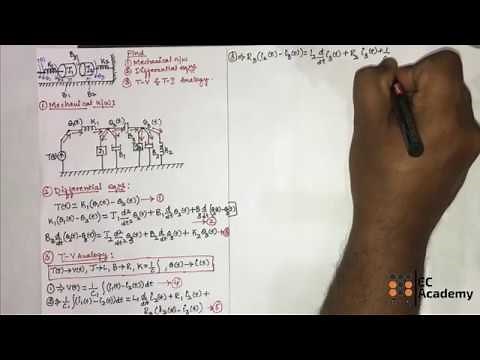 Find
① Mechanical N/W
② Differential eqns
③ T-V & T-I Analogy.
① Mechanical N/W:
θ₁(t) K₁ θ₂(t) B₃ θ₃(t)
T(t) J₁ B₁ J₂ B₂ K₂
② Differential eqns:
T(t) = K₁(θ₁(t) - θ₂(t)) → ①
K₁(θ₁(t) - θ₂(t)) = J₁ d²/dt² θ₂(t) + B₁ d/dt θ₂(t) + B₃ d/dt (θ₂(t) - θ₃(t))
→ ②
B₃ d/dt (θ₂(t) - θ₃(t)) = J₂ d²/dt² θ₃(t) + B₂ d/dt θ₃(t) + K₂ θ₃(t) → ③
③ T-V Analogy:
T(t) → V(t), J → L, B → R, K = 1/C, θ(t) → i(t)
① ⇒ V(t) = 1/C₁ ∫(i₁(t) - i₂(t)) dt → ④
② ⇒ 1/C₁ ∫(i₁(t) - i₂(t)) dt = L₁ d/dt i₂(t) + R₁ i₂(t) +
R₃(i₂(t) - i₃(t)) → ⑤
③ ⇒ R₃(i₂(t) - i₃(t)) = L₂ d/dt i₃(t) + R₂ i₃(t) + 1
EC
Academy